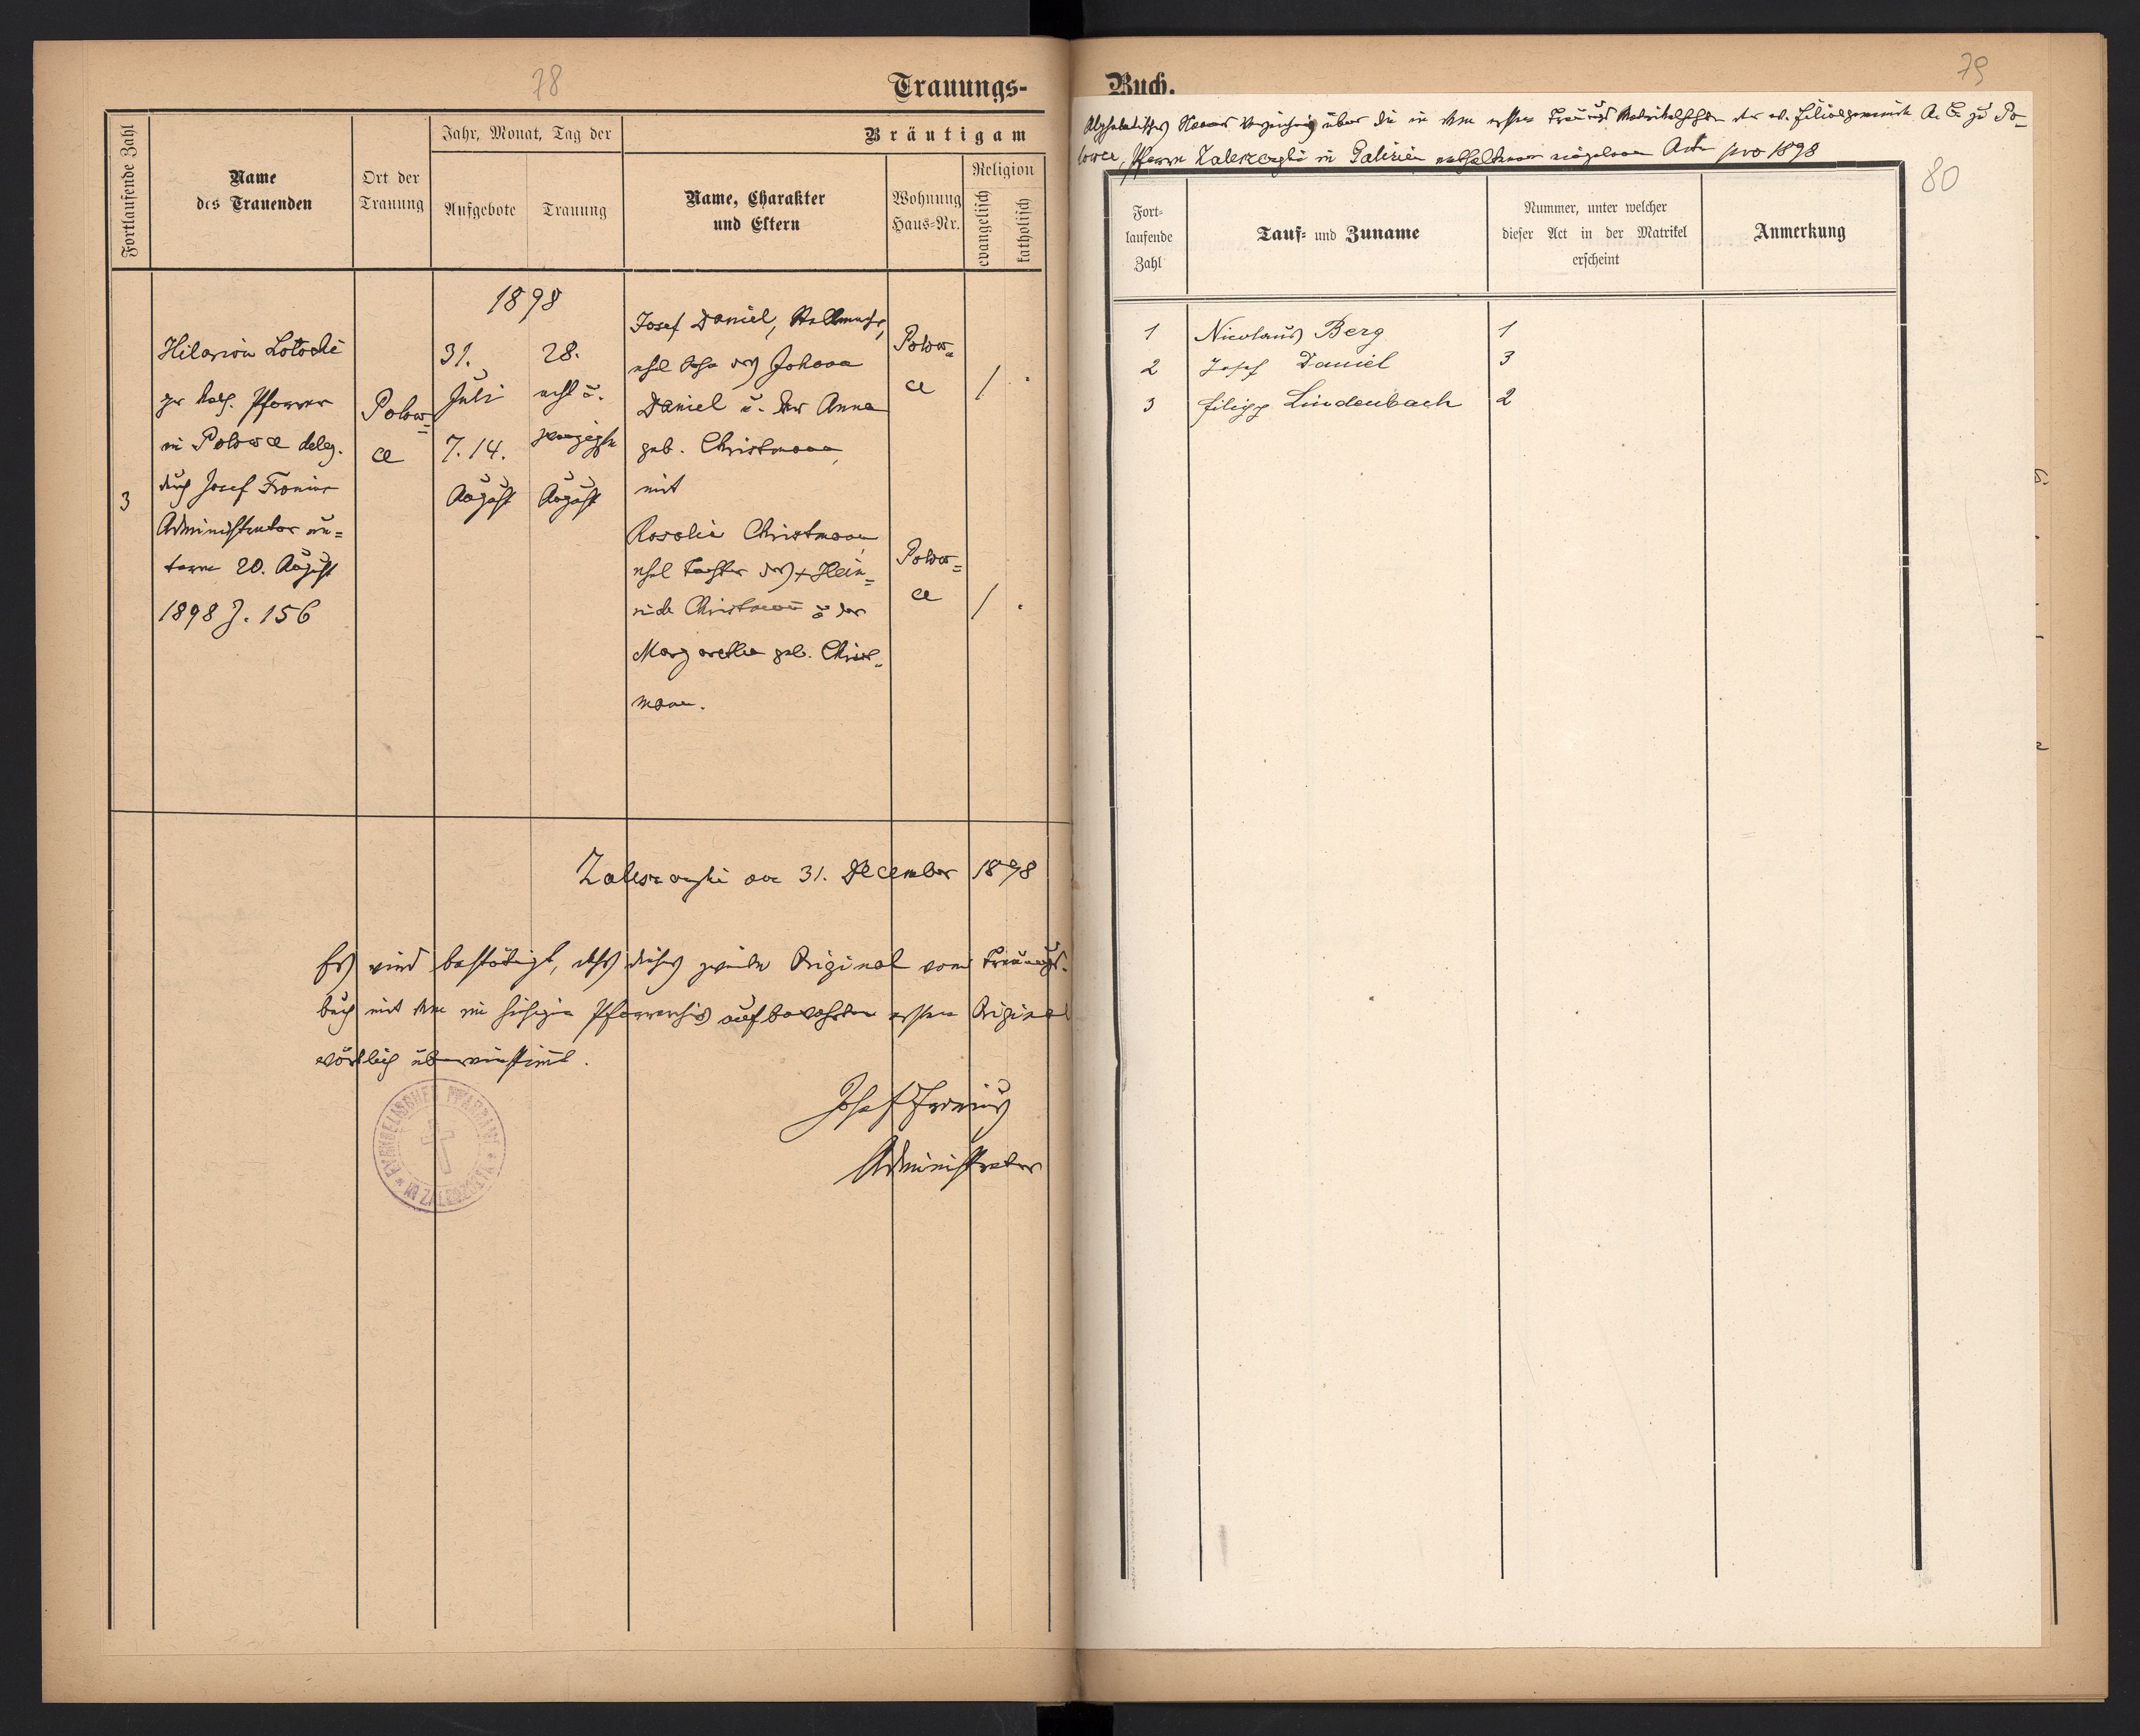 78
Trauungs-
Fortlaufende Zahl
Name
des Trauenden
Ort der
Trauung
Jahr, Monat, Tag der
Aufgebote
Trauung
Bräutigam
Name, Charakter
und Eltern
Wohnung
Haus-Nr.
Religion
evangelisch
katholisch
3
Hilarion Lotocki
gr. kath. Pfarrer
in Polowce deleg.
durch Josef Fronius
Administrator un=
term 20. August
1898 Z. 156
Polow=
ce
1898
31.
Juli
7. 14.
August
28.
acht u.
zwanzigste
August
Josef Daniel,
ehel Sohn des Johann
Daniel u. der Anna
geb. Christmann,
mit
Rosalia Christmann
ehel Tochter des + Hein=
rich Christmann u der
Margaretha geb. Christ=
mann.
Polow=
ce
/ .
Polow=
ce
/ .
Zaleszczyki am 31. December 1898
Es wird bestätigt, dass dieses zweite Original vom Trauungs-
buch mit dem im hiesigen Pfarrarchiv aufbewahrten ersten Original
wörtlich übereinstimmt.
EVANGELISCHES PFARRAMT
IN ZALESZCZYKI
Josef Fronius
Administrator
Buch.
79
Alphabetisches Namens Verzeichnis über die in dem ersten Trauungs der ev. Filialgemeinde A. C. zu Po=
lowce, Pfarre Zaleszczyki in Galizien enthaltenen eingetragenen Acte pro 1898
80
Fort-
laufende
Zahl
Tauf- und Zuname
Nummer, unter welcher
dieser Act in der Matrikel
erscheint
Anmerkung
1 Nicolaus Berg 1
2 Josef Daniel 3
3 Filipp Lindenbach 2